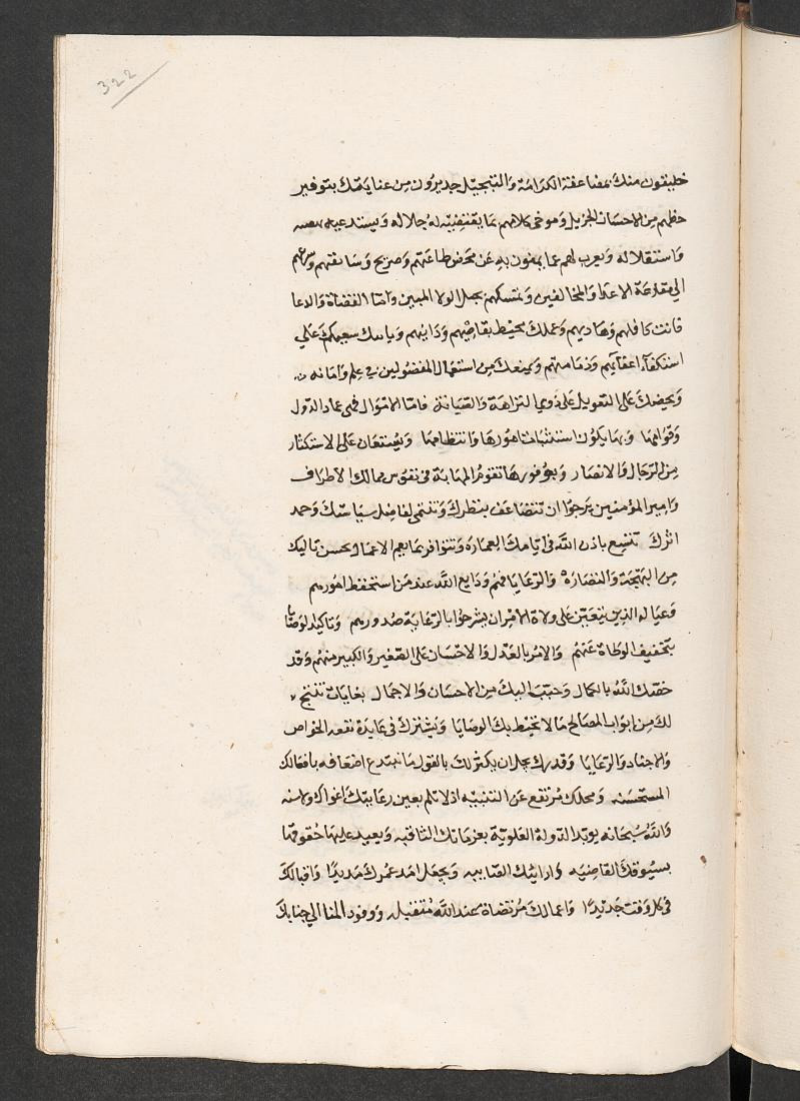 322
خليقون منك بمضاعفة الكرامة والتبجيل جديرون من عنايتك بتوفير
حظهم من الاحسان الجزيل وموخى كلامهم بما يقتضيه له جلاله ويستدعيه
واستقلاله ويعرب لهم عما يمنون به عن محض طاعتهم وصريح وسابقتهم
الى مقارعة الاعدا والمخالفين وتمسكهم بحبل الولا المبين واما القضاة والدعا
فانت كافلهم وهاديهم وعملك محيط بقاصيهم ودانيهم
استكفاء اعفايهم وذمامتهم ويمنعك من استعمال المفضولين في علم وامانه
ويحضك على التعويل على ذوي النزاهة والصيانة فاما الاموال فهى عماد الدول
وقوامها وبها يكون استتباب امورها وانتظامها ويستعان على الاستكثار
من الرجال والانصار وبوفورها تقوم المهابة فى نفوس ممالك الاطراف
وامير المؤمنين يرجوا ان تتضاعف بنظرك وتنمى لفاضل سياستك وحمد
اثرك تتسع باذن الله فى ايامك العمارة وتتوافر بما يعم الاعمال بحسن تاليك
من البهجة والنضارة والرعايا فهم ودايع الله عند من استحفظ امورهم
وعياله الذين يتعين على ولاة الامر ان يشرحوا بالرعاية صدورهم وتاكيد لوصاتك
بتخفيف الوطاة عنهم والامر بالعدل والاحسان على الصغير والكبير منهم وقد
خصك الله بالكمال وحبب اليك من الاحسان والاجمال بغايات تنتج
لك من ابواب المصالح ما لا تحيط بك الوصايا وتشترك فى عايدة نفعه الخواص
والاجناد والرعايا وقدرك يجل ان يكثر لك بالقول ما تبتدع اضعافه بافعالك
المستحسنه ومحلك يرتفع عن التنبيه اذ لا تلم بعين رعايتك اغوال ولا سنه
والله سبحانه يويد الدولة العلوية بعزماتك الثاقبه ويعيد عليها حقوقها
بسيوفك القاضيه وارائك الصائبه ويجعل امد عمرك مديدا واقبالك
فى كل وقت جديدا واعمالك مرتضاة عند الله متقبله ووفود المنا الى جنابك